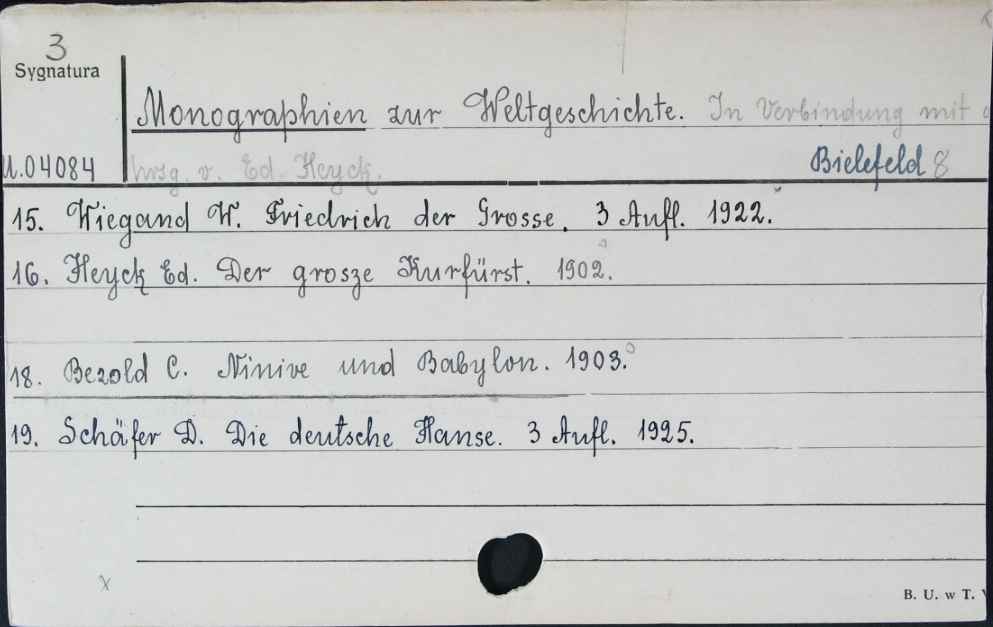 3
Sygnatura
Monographien zur Weltgeschichte. In Verbindung mit
U.04084 hrsg. v. Ed. Heyck. Bielefeld 8
15. Wiegand W. Friedrich der Grosse. 3 Aufl. 1922.
16. Heyck Ed. Der grosze Kurfürst. 1902.
18. Bezold C. Ninive und Babylon. 1903.
19. Schäfer D. Die deutsche Hanse. 3 Aufl. 1925.
x
B. U. w T.